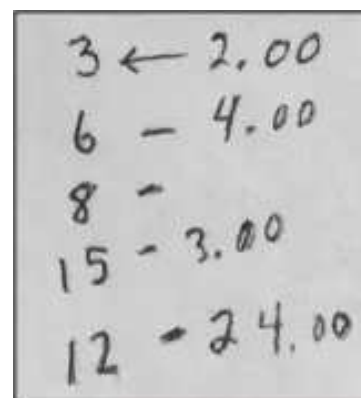 3 ← 2.00
6 - 4.00
8 -
15 - 3.00
12 - 24.00